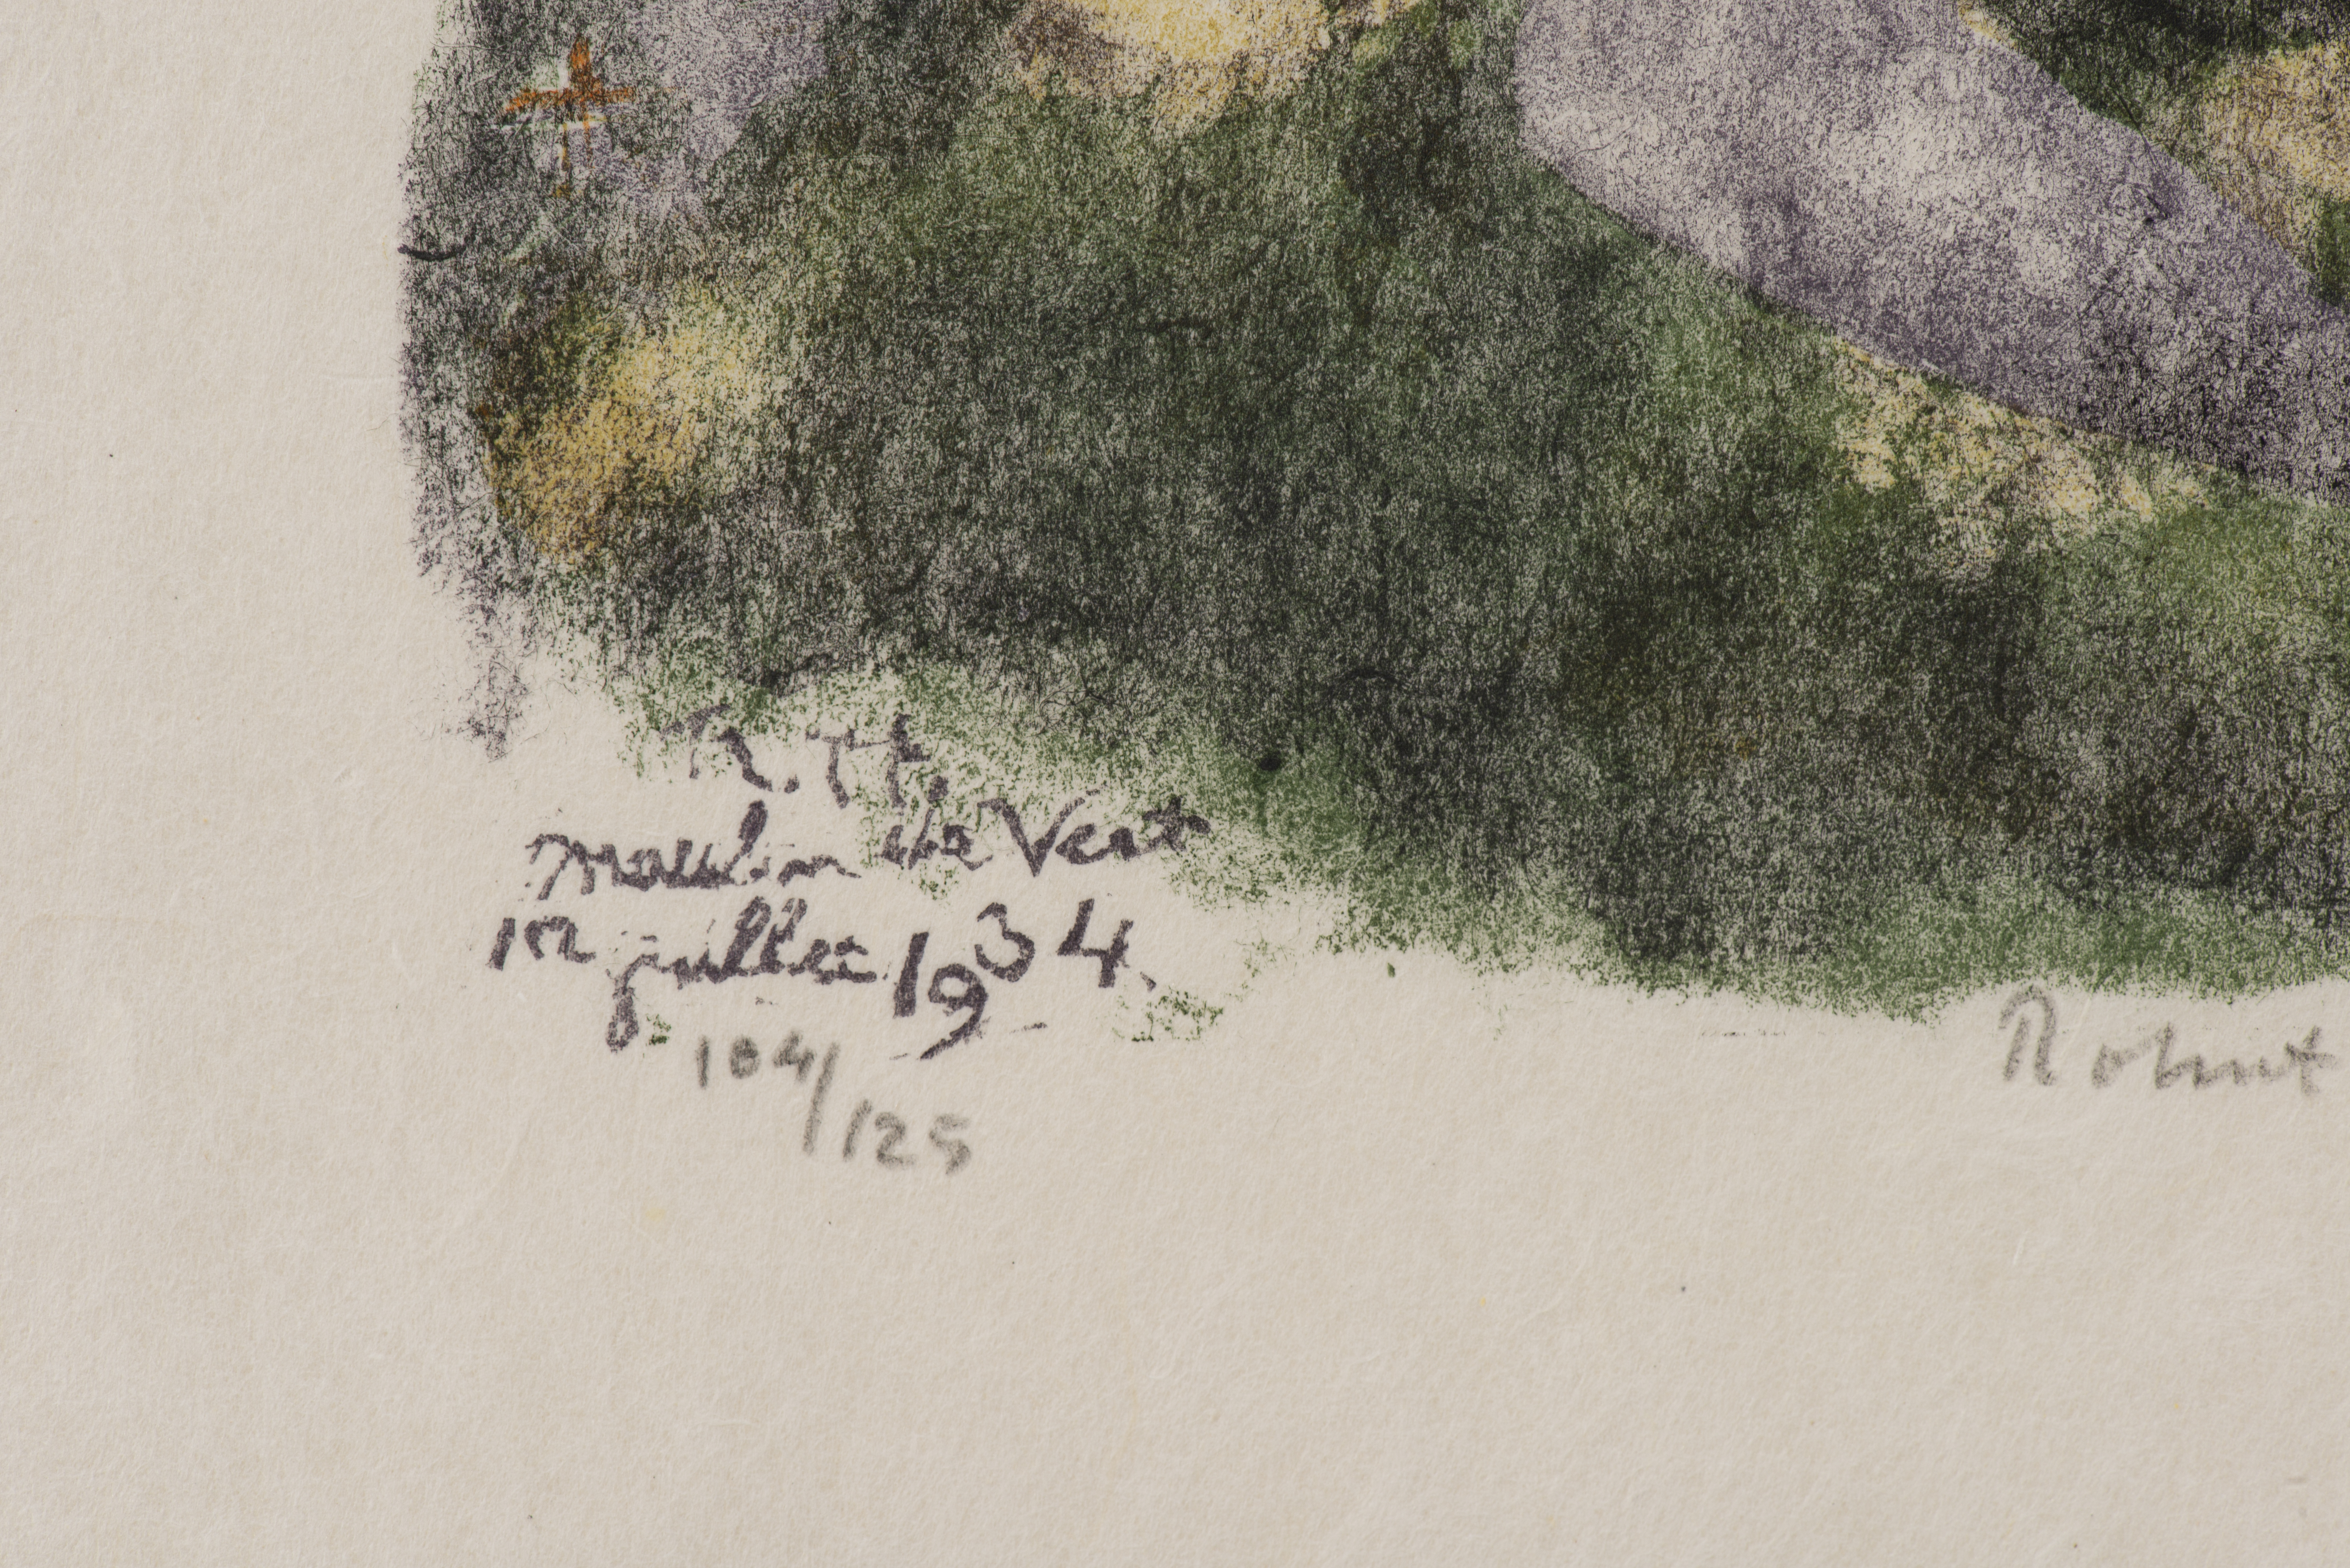 R. H.
moulin de Vert
1er juillet 1934.
104/125
Robert